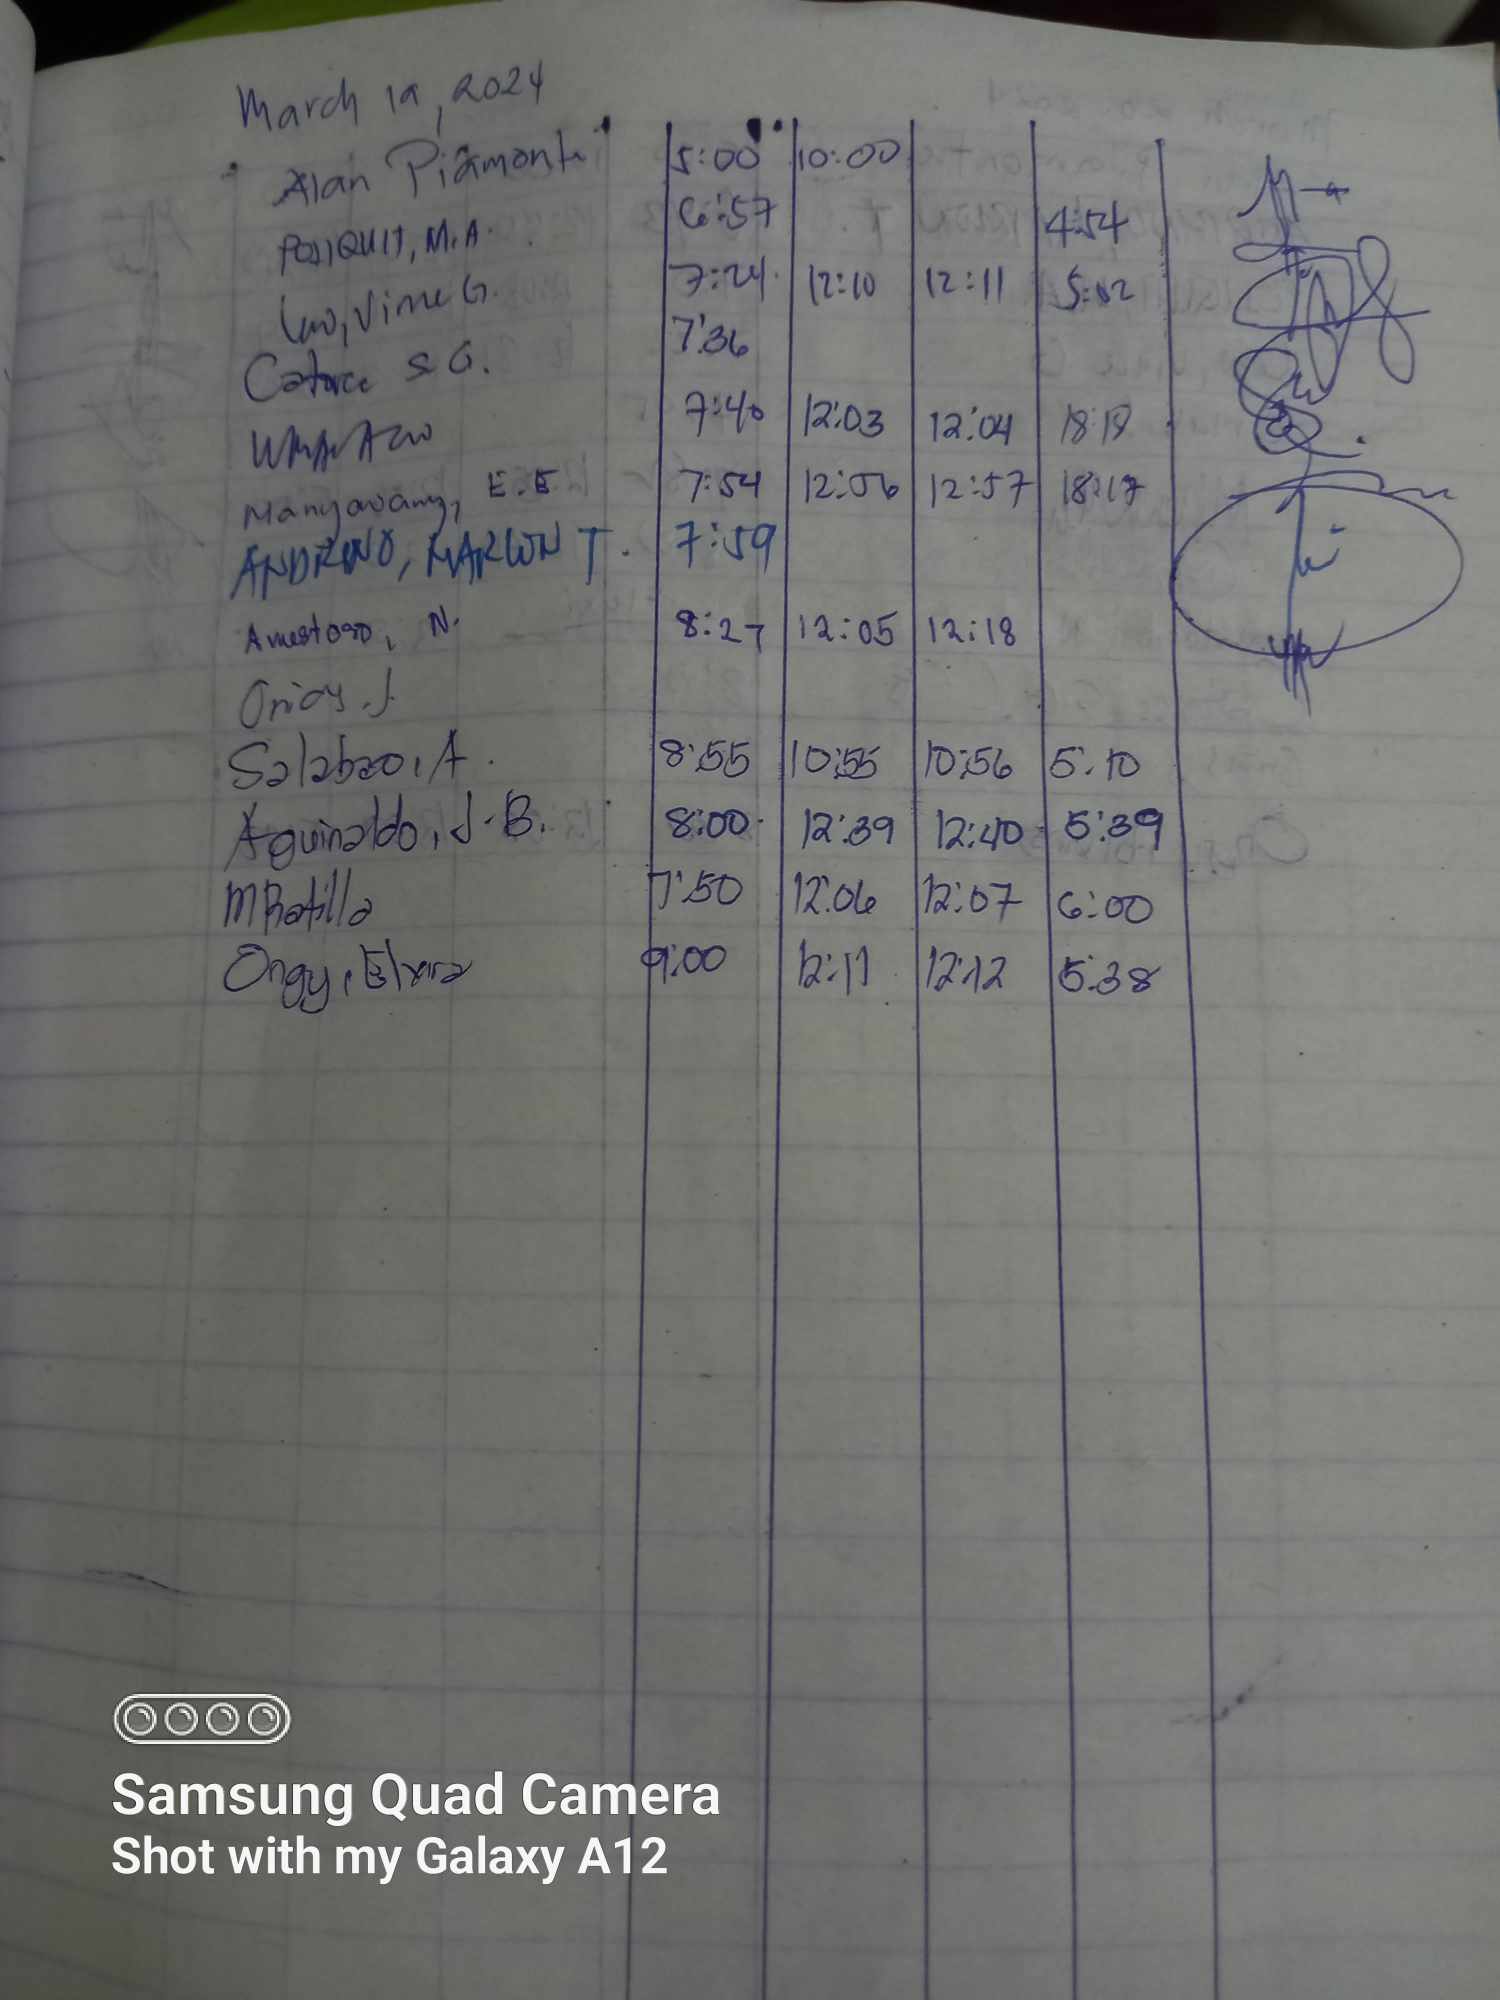 March 19, 2024
Alan Piamonte 5:00 10:00
POSIQUIT, M.A. 6:57 4:54
Vime G. 7:24 12:10 12:11 5:02
S G. 7:36
7:40 12:03 12:04 18:18
Manyavang, E.E 7:54 12:56 12:57 18:17
ANDRINO, MARLON T. 7:59
Amestoso, N. 8:27 12:05 12:18
Orias, J
Salabao, A. 8:55 10:55 10:56 5:10
Aguinaldo, J.B. 8:00 12:39 12:40 5:39
MRatilla 7:50 12:06 12:07 6:00
Ongy, Elvira 9:00 12:11 12:12 5:38
Samsung Quad Camera
Shot with my Galaxy A12